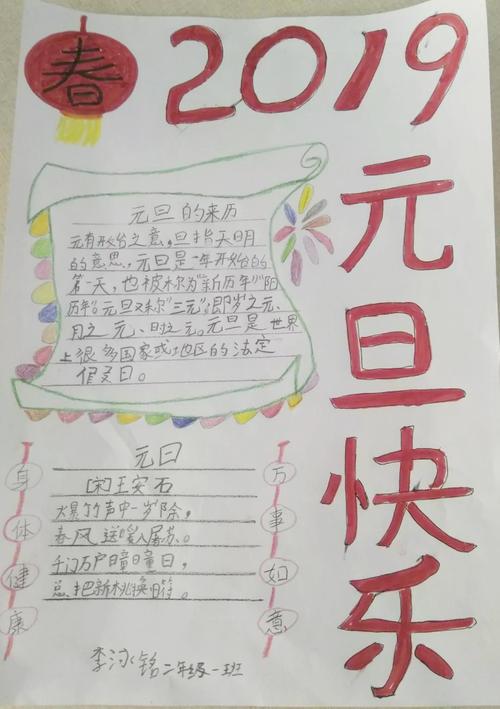 春
2019
元旦快乐
元旦的来历
元有开始之意,旦指天明
的意思,元旦是一年开始的
第一天,也被称为"新历年""阳
历年"。元旦又称"三元",即岁之元、
月之元、时之元。元旦是世界
上很多国家或地区的法定
假日。
元日
[宋]王安石
爆竹声中一岁除,
春风送暖入屠苏。
千门万户曈曈日,
总把新桃换旧符。
身体健康
万事如意
李泳铭二年级一班